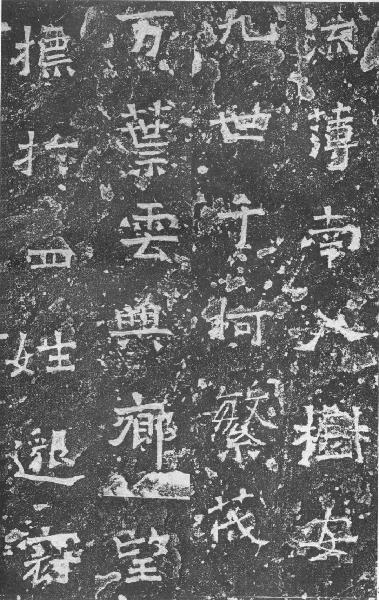 流薄南入樹安
九世千柯繁茂
万葉雲興鄉望
摽扵四姓邈冠